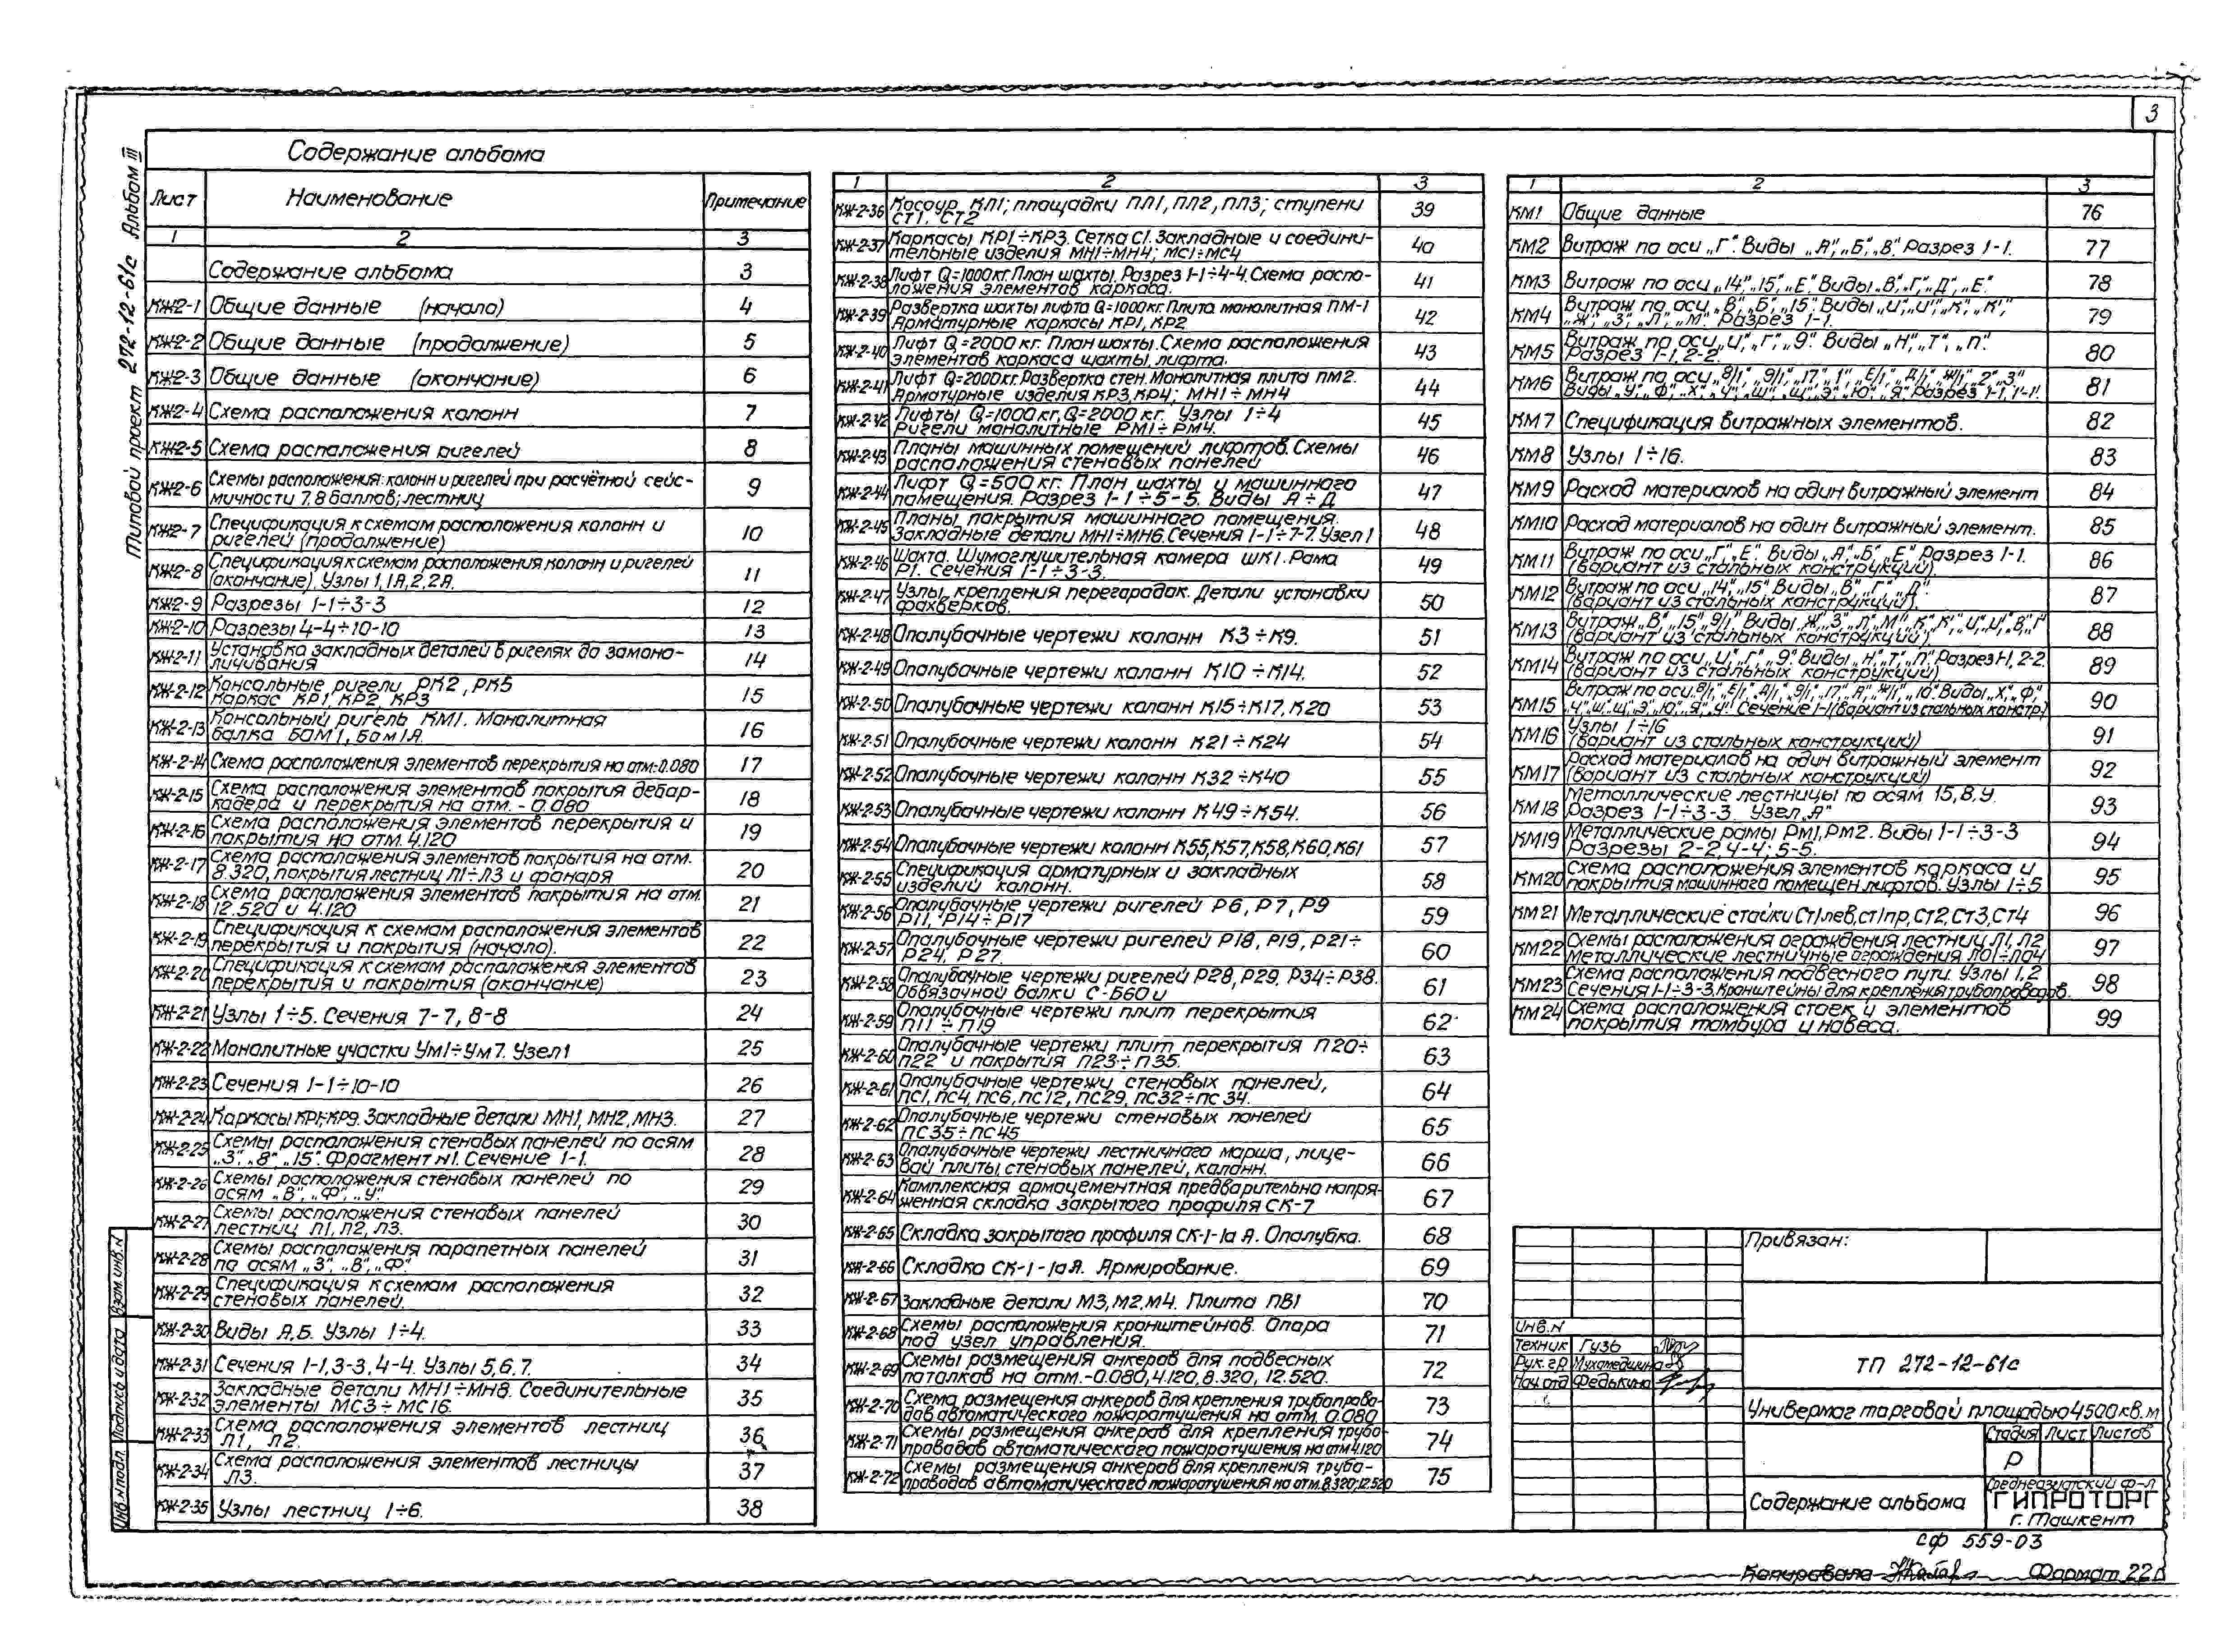 3
Типовой проект 272-12-61с Альбом III
Содержание альбома
Лист Наименование Примечание
1 2 3
Содержание альбома 3
КЖ2-1 Общие данные (начало) 4
КЖ2-2 Общие данные (продолжение) 5
КЖ2-3 Общие данные (окончание) 6
КЖ2-4 Схема расположения колонн 7
КЖ2-5 Схема расположения ригелей 8
КЖ2-6 Схемы расположения: колонн и ригелей при расчётной сейс-
мичности 7,8 баллов; лестниц 9
КЖ2-7 Спецификация к схемам расположения колонн и
ригелей (продолжение) 10
КЖ2-8 Спецификация к схемам расположения колонн и ригелей
(окончание). Узлы 1,1А,2,2А. 11
КЖ2-9 Разрезы 1-1÷3-3 12
КЖ2-10 Разрезы 4-4÷10-10 13
КЖ2-11 Установка закладных деталей в ригелях до замоно-
личивания 14
КЖ-2-12 Консольные ригели РК2, РК5
Каркас КР1, КР2, КР3 15
КЖ-2-13 Консольный ригель КМ1. Монолитная
балка БОМ1, Бом1А. 16
КЖ-2-14 Схема расположения элементов перекрытия на отм.-0.080 17
КЖ-2-15 Схема расположения элементов покрытия дебар-
кадера и перекрытия на отм. - 0.080 18
КЖ-2-16 Схема расположения элементов перекрытия и
покрытия на отм. 4.120 19
КЖ-2-17 Схема расположения элементов покрытия на отм.
8.320, покрытия лестниц Л1÷Л3 и фонаря 20
КЖ-2-18 Схема расположения элементов покрытия на отм.
12.520 и 4.120 21
КЖ-2-19 Спецификация к схемам расположения элементов
перекрытия и покрытия (начало). 22
КЖ-2-20 Спецификация к схемам расположения элементов
перекрытия и покрытия (окончание) 23
КЖ-2-21 Узлы 1÷5. Сечения 7-7, 8-8 24
КЖ-2-22 Монолитные участки Ум1÷Ум7. Узел 1 25
КЖ-2-23 Сечения 1-1÷10-10 26
КЖ-2-24 Каркасы КР1÷КР9. Закладные детали МН1, МН2, МН3. 27
КЖ-2-25 Схемы расположения стеновых панелей по осям
„3", „8", „15". Фрагмент N1. Сечение 1-1. 28
КЖ-2-26 Схемы расположения стеновых панелей по
осям „В", „Ф", „У". 29
КЖ-2-27 Схемы расположения стеновых панелей
лестниц Л1, Л2, Л3. 30
КЖ-2-28 Схемы расположения парапетных панелей
по осям „3", „В", „Ф". 31
КЖ-2-29 Спецификация к схемам расположения
стеновых панелей. 32
КЖ-2-30 Виды А,Б. Узлы 1÷4. 33
КЖ-2-31 Сечения 1-1,3-3,4-4. Узлы 5,6,7. 34
КЖ-2-32 Закладные детали МН1÷МН8. Соединительные
элементы МС3÷МС16. 35
КЖ-2-33 Схема расположения элементов лестниц
Л1, Л2. 36
КЖ-2-34 Схема расположения элементов лестницы
Л3. 37
КЖ-2-35 Узлы лестниц 1÷6. 38
1 2 3
КЖ-2-36 Косоур КЛ1; площадки ПЛ1, ПЛ2, ПЛ3; ступени
СТ1, СТ2 39
КЖ-2-37 Каркасы КР1÷КР3. Сетка С1. Закладные и соедини-
тельные изделия МН1÷МН4; МС1÷МС4 40
КЖ-2-38 Лифт Q=1000кг. План шахты. Разрез 1-1÷4-4. Схема распо-
ложения элементов каркаса. 41
КЖ-2-39 Развертка шахты лифта Q=1000кг. Плита монолитная ПМ-1
Арматурные каркасы КР1, КР2 42
КЖ-2-40 Лифт Q=2000 кг. План шахты. Схема расположения
элементов каркаса шахты, лифта. 43
КЖ-2-41 Лифт Q=2000кг. Развертка стен. Монолитная плита ПМ2.
Арматурные изделия КР3, КР4; МН1÷МН4 44
КЖ-2-42 Лифты Q=1000кг, Q=2000 кг. Узлы 1÷4
Ригели монолитные РМ1÷РМ4. 45
КЖ-2-43 Планы машинных помещений лифтов. Схемы
расположения стеновых панелей 46
КЖ-2-44 Лифт Q=500 кг. План шахты и машинного
помещения. Разрез 1-1÷5-5. Виды А÷Д 47
КЖ-2-45 Планы покрытия машинного помещения.
Закладные детали МН1÷МН6. Сечения 1-1÷7-7. Узел 1 48
КЖ-2-46 Шахта. Шумоглушительная камера ШК1. Рама
Р1. Сечения 1-1÷3-3. 49
КЖ-2-47 Узлы, крепления перегородок. Детали установки
фахверков. 50
КЖ-2-48 Опалубочные чертежи колонн К3÷К9. 51
КЖ-2-49 Опалубочные чертежи колонн К10÷К14. 52
КЖ-2-50 Опалубочные чертежи колонн К15÷К17, К20 53
КЖ-2-51 Опалубочные чертежи колонн К21÷К24 54
КЖ-2-52 Опалубочные чертежи колонн К32÷К40 55
КЖ-2-53 Опалубочные чертежи колонн К49÷К54. 56
КЖ-2-54 Опалубочные чертежи колонн К55, К57, К58, К60, К61 57
КЖ-2-55 Спецификация арматурных и закладных
изделий колонн. 58
КЖ-2-56 Опалубочные чертежи ригелей Р6, Р7, Р9
Р11, Р14÷Р17 59
КЖ-2-57 Опалубочные чертежи ригелей Р18, Р19, Р21÷
Р24, Р27. 60
КЖ-2-58 Опалубочные чертежи ригелей Р28, Р29, Р34÷Р38.
Обвязочной балки С-Б60и 61
КЖ-2-59 Опалубочные чертежи плит перекрытия
П11÷П19 62
КЖ-2-60 Опалубочные чертежи плит перекрытия П20÷
П22 и покрытия П23÷П35. 63
КЖ-2-61 Опалубочные чертежи стеновых панелей,
ПС1, ПС4, ПС6, ПС12, ПС29, ПС32÷ПС34. 64
КЖ-2-62 Опалубочные чертежи стеновых панелей
ПС35÷ПС45 65
КЖ-2-63 Опалубочные чертежи лестничного марша, лице-
вой плиты, стеновых панелей, колонн. 66
КЖ-2-64 Комплексная армоцементная предварительно напря-
женная складка закрытого профиля СК-7 67
КЖ-2-65 Складка закрытого профиля СК-1-1а А. Опалубка. 68
КЖ-2-66 Складка СК-1-1аА. Армирование. 69
КЖ-2-67 Закладные детали М3, М2, М4. Плита ПВ1 70
КЖ-2-68 Схемы расположения кронштейнов. Опора
под узел управления. 71
КЖ-2-69 Схемы размещения анкеров для подвесных
потолков на отм.-0.080, 4.120, 8.320, 12.520. 72
КЖ-2-70 Схема размещения анкеров для крепления трубопрово-
дов автоматического пожаротушения на отм. 0.080 73
КЖ-2-71 Схемы размещения анкеров для крепления трубо-
проводов автоматического пожаротушения на отм 4.120 74
КЖ-2-72 Схемы размещения анкеров для крепления трубо-
проводов автоматического пожаротушения на отм. 8.320; 12.520 75
1 2 3
КМ1 Общие данные 76
КМ2 Витраж по оси „Г". Виды „А", „Б", „В". Разрез 1-1. 77
КМ3 Витраж по оси „14", „15", „Е". Виды „В", „Г", „Д", „Е". 78
КМ4 Витраж по оси „В", „Б", „15". Виды „И", „И'", „К", „К'",
„Ж", „З", „Л", „М". Разрез 1-1. 79
КМ5 Витраж по оси „И", „Г", „9". Виды „Н", „Т", „П".
Разрез 1-1, 2-2. 80
КМ6 Витраж по оси „8/1", „9/1", „17", „1", „Е/1", „Д/1", „Ж/1", „2", „3"
Виды „У", „Ф", „Х", „Ч", „Ш", „Щ", „Э", „Ю", „Я". Разрез 1-1, 1-1. 81
КМ7 Спецификация витражных элементов. 82
КМ8 Узлы 1÷16. 83
КМ9 Расход материалов на один витражный элемент 84
КМ10 Расход материалов на один витражный элемент. 85
КМ11 Витраж по оси „Г", „Е". Виды „А", „Б", „Е" Разрез 1-1.
(вариант из стальных конструкций). 86
КМ12 Витраж по оси „14", „15" Виды „В", „Г", „Д".
(вариант из стальных конструкций). 87
КМ13 Витраж „В", „15", „9/1" Виды „Ж", „З", „Л", „М", „К", „К'", „И", „И'", „В", „Г"
(вариант из стальных конструкций) 88
КМ14 Витраж по оси „И", „Г", „9". Виды „Н", „Т", „П". Разрез 1-1, 2-2.
(вариант из стальных конструкций) 89
КМ15 Витраж по оси „8/1", „Е/1", „Д/1", „9/1", „17", „Я", „Ж/1", „10". Виды „Х", „Ф",
„Ч", „Ш", „Щ", „Э", „Ю", „Я", „У". Сечение 1-1 (вариант из стальных констр.) 90
КМ16 Узлы 1÷16
(вариант из стальных конструкций) 91
КМ17 Расход материалов на один витражный элемент
(вариант из стальных конструкций) 92
КМ18 Металлические лестницы по осям 15, В, У.
Разрез 1-1÷3-3. Узел „А" 93
КМ19 Металлические рамы Рм1, Рм2. Виды 1-1÷3-3
Разрезы 2-2, 4-4; 5-5. 94
КМ20 Схема расположения элементов каркаса и
покрытия машинного помещен. лифтов. Узлы 1÷5 95
КМ21 Металлические стойки Ст1лев, ст1пр, СТ2, СТ3, СТ4 96
КМ22 Схемы расположения ограждения лестниц Л1, Л2
Металлические лестничные ограждения ЛО1÷ЛО4 97
КМ23 Схема расположения подвесного пути. Узлы 1,2
Сечения 1-1÷3-3. Кронштейны для крепления трубопроводов. 98
КМ24 Схема расположения стоек и элементов
покрытия тамбура и навеса. 99
Привязан:
Инв.N
Техник Гузь
Рук. гр. Мухамедшина
Нач. отд Федькина
ТП 272-12-61с
Универмаг торговой площадью 4500кв.м
Стадия Лист Листов
Р
Содержание альбома
Среднеазиатский ф-л
ГИПРОТОРГ
г. Ташкент
сф 559-03
Копировала Формат 22г
Взам. инв. N
Подпись и дата
Инв. N подл.